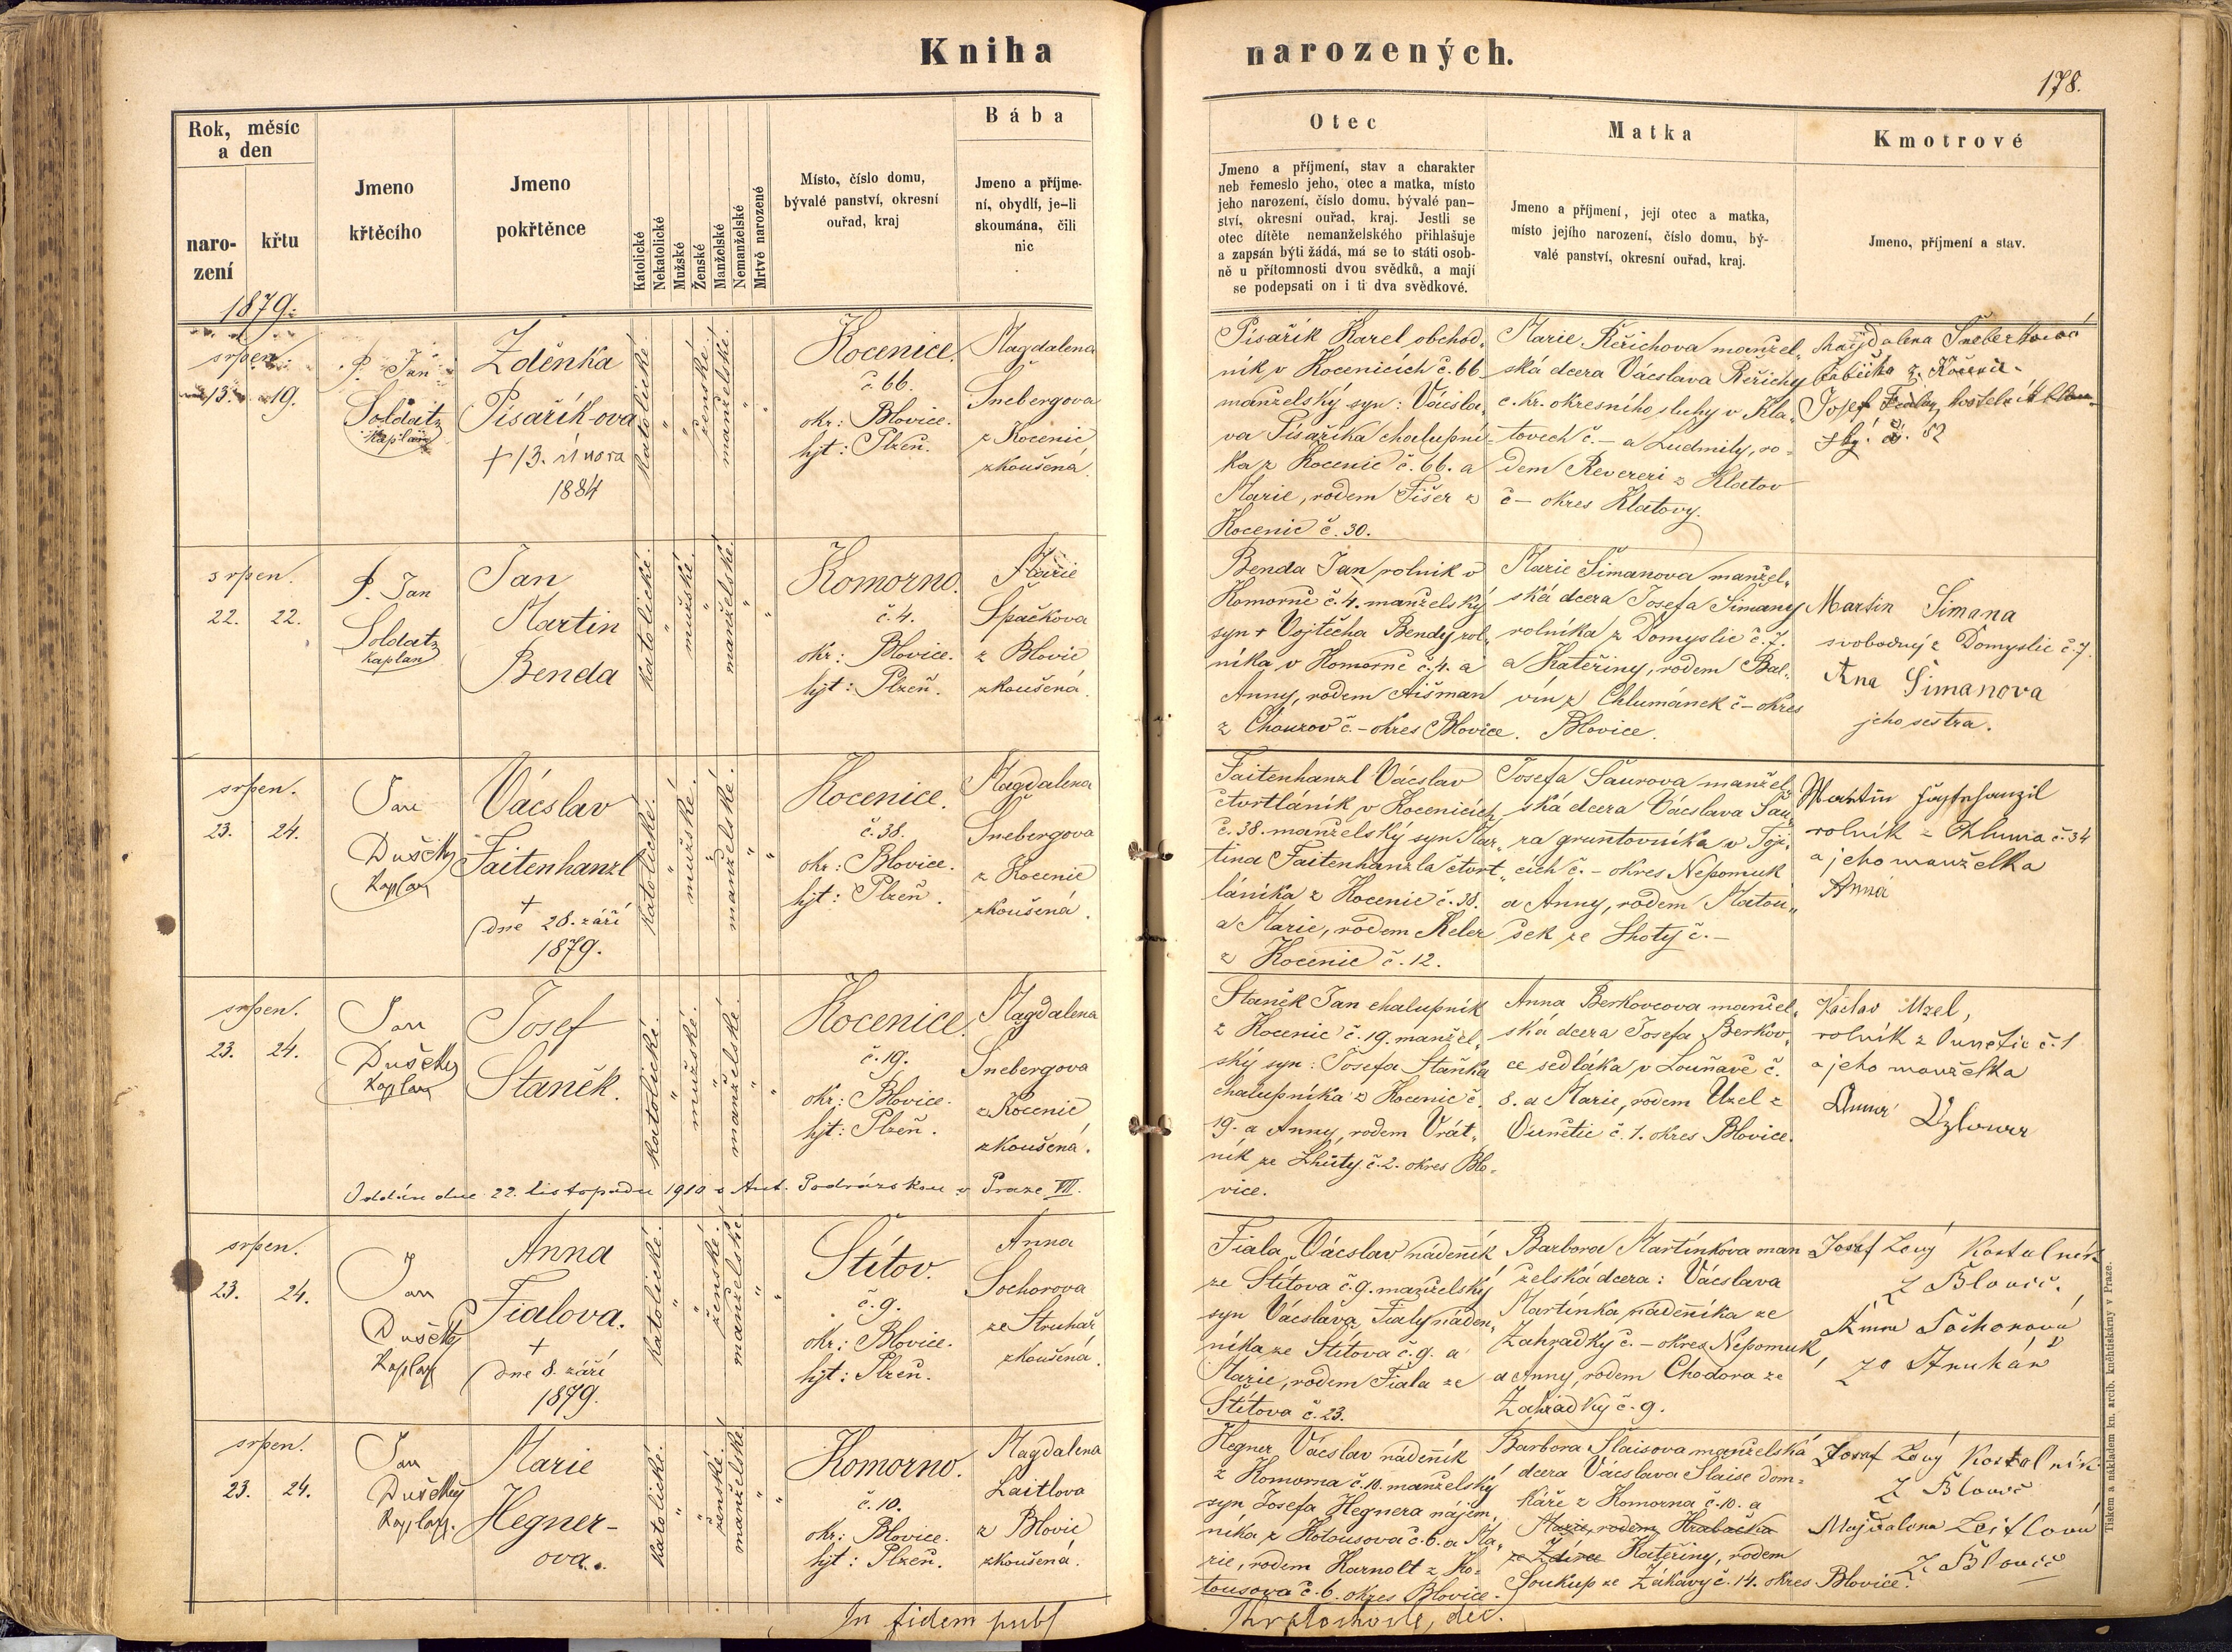 Kniha narozených.
178.
Rok, měsíc
a den
naro-
zení
křtu
Jmeno
křtěcího
Jmeno
pokřtěnce
Katolické
Nekatolické
Mužské
Ženské
Manželské
Nemanželské
Mrtvě narozené
Místo, číslo domu,
bývalé panství, okresní
ouřad, kraj
Bába
Jmeno a příjme-
ní, obydlí, je-li
skoumána, čili
nic
Otec
Jmeno a příjmení, stav a charakter
neb řemeslo jeho, otec a matka, místo
jeho narození, číslo domu, bývalé pan-
ství, okresní ouřad, kraj. Jestli se
otec dítěte nemanželského přihlašuje
a zapsán býti žádá, má se to státi osob-
ně u přítomnosti dvou svědků, a mají
se podepsati on i ti dva svědkové.
Matka
Jmeno a příjmení, její otec a matka,
místo jejího narození, číslo domu, bý-
valé panství, okresní ouřad, kraj.
Kmotrové
Jmeno, příjmení a stav.
1879.
srpen.
13. 19.
P. Jan
Soldatz
kaplan
Zděnka
Písařík-ova
+ 13. února
1884
katolické.
ženské.
manželské.
Kocenice.
č. 66.
okr: Blovice.
hjt: Plzeň.
Magdalena
Šnebergova
z Kocenic
zkoušená.
Písařík Karel obchod-
ník v Kocenicích č. 66
manželský syn: Vácsla-
va Písaříka chalupní-
ka z Kocenic č. 66. a
Marie, rodem Fišer z
Kocenic č. 30.
Marie Řeřichova manžel-
ská dcera Vácslava Řeřichy
c. kr. okresního sluhy v Kla-
tovech č. – a Ludmily, ro-
dem Revereri z Klatov
č – okres Klatovy.
Magdalena
babička z
Josef
č. 82
srpen.
22. 22.
P. Jan
Soldatz
kaplan
Jan
Martin
Benda
katolické.
mužské.
manželské.
Komorno.
č. 4.
okr: Blovice.
hjt: Plzeň.
Marie
Špačkova
z Blovic
zkoušená.
Benda Jan rolník v
Komorně č. 4. manželský
syn + Vojtěcha Bendy rol-
níka v Komorně č. 4. a
Anny, rodem Aišman
z Chouzov č. – okres Blovice.
Marie Šimanova manžel-
ská dcera Josefa Šimany
rolníka z Domyslic č. 7.
a Kateřiny, rodem Bal-
vín z Chlumánek č – okres
Blovice.
Martin Šimana
svobodný z Domyslic č. 7.
Ana Šimanova
jeho sestra.
srpen.
23. 24.
Jan
Dušek
Kaplan
Vácslav
Faitenhanzl
+
dne 28. září
1879.
katolické.
mužské.
manželské.
Kocenice.
č. 38.
okr: Blovice.
hjt: Plzeň.
Magdalena
Šnebergova
z Kocenic
zkoušená.
Faitenhanzl Vácslav
čtvrtláník v Kocenicích
č. 38. manželský syn Mar-
tina Faitenhanzla čtvrt-
láníka z Kocenic č. 38.
a Marie, rodem Keler
z Kocenic č. 12.
Josefa Šaurova manžel-
ská dcera Vácslava Šau-
ra gruntovníka v
cích č. – okres Nepomuk
a Anny, rodem Matou-
šek ze Lhoty č. –
Martin
rolník z Chlumu č. 34
a jeho manželka
Anna
srpen.
23. 24.
Jan
Dušek
Kaplan
Josef
Staněk.
katolické.
mužské.
manželské.
Kocenice.
č. 19.
okr: Blovice.
hjt: Plzeň.
Magdalena
Šnebergova
z Kocenic
zkoušená.
Staněk Jan chalupník
z Kocenic č. 19. manžel-
ský syn: Josefa Staňka
chalupníka z Kocenic č.
19. a Anny, rodem Vrát-
ník ze Lhůty č. 2. okres Blo-
vice.
Anna Berkovcova manžel-
ská dcera Josefa Berkov-
ce sedláka v Louňavě č.
8. a Marie, rodem Uzel z
Vunětic č. 1. okres Blovice.
Václav Uzel,
rolník z Vunětic č. 1
a jeho manželka
Anna Uzlowa
Oddán dne 22. listopadu 1910 s Ant. Podrázskou v Praze VII.
srpen.
23. 24.
Jan
Dušek
Kaplan
Anna
Fialova.
+
dne 8. září
1879.
katolické.
ženské.
manželské.
Štítov.
č. 9.
okr: Blovice.
hjt: Plzeň.
Anna
Sochorova
ze Struhař
zkoušená.
Fiala Vácslav nádeník
ze Štítova č. 9. manželský
syn Vácslava Fialy náden-
níka ze Štítova č. 9. a
Marie, rodem Fiala ze
Štítova č. 23.
Barbora Martínkova man
želská dcera: Vácslava
Martínka nádeníka ze
Zahradky č. – okres Nepomuk
a Anny, rodem Chodora ze
Zahradky č. 9.
Josef Levý Kostelník
z Blovic.
Anna Sochorová
ze Struhár
srpen.
23. 24.
Jan
Dušek
Kaplan.
Marie
Hegner-
ova.
katolické.
ženské.
manželské.
Komorno.
č. 10.
okr: Blovice.
hjt: Plzeň.
Magdalena
Laitlova
z Blovic
zkoušená.
Hegner Vácslav nádeník
z Komorna č. 10. manželský
syn Josefa Hegnera nájem-
níka z Kotousova č. 6. a Ma-
rie, rodem Harnolt z Ko-
tousova č. 6. okres Blovice.
Barbora Slaisova manželská
dcera Vácslava Slaise dom-
káře z Komorna č. 10. a
Marie, rodem Hrabačka
ze Ždírce Kateřiny, rodem
Soukup ze Žákavy č. 14. okres Blovice.
Josef Levý Kostelník
z Blovic
Majdalena Leitlová
z Blovic
In fidem publ
děk.
Tiskem a nákladem kn. arcib. kněhtiskárny v Praze.